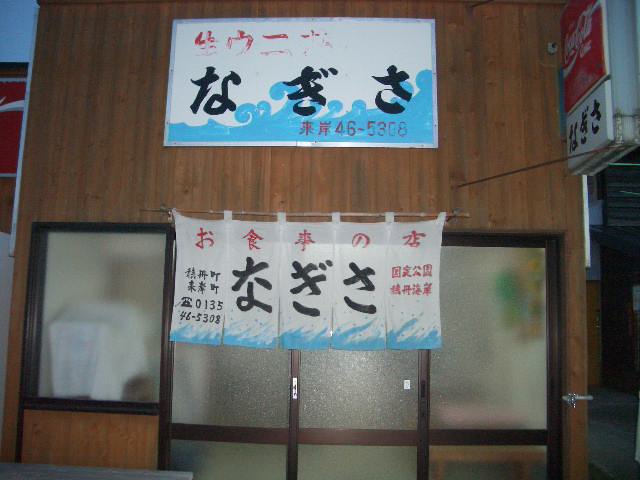 生ウニ
なぎさ
来岸46-5308
Coca-Cola
なぎさ
お食事の店
なぎさ
積丹町
来岸町
☎0135
46-5308
国定公園
積丹海岸